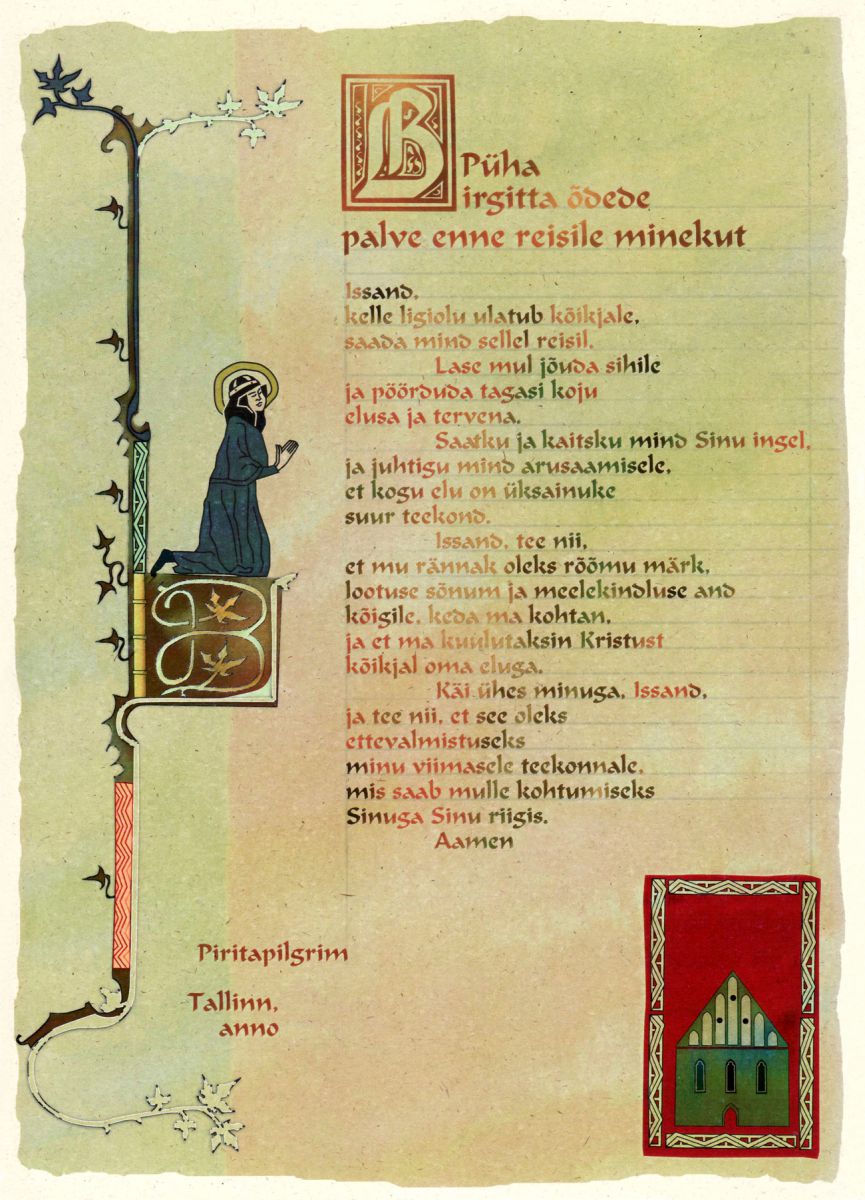 Püha
Birgitta õdede
palve enne reisile minekut
Issand,
kelle ligiolu ulatub kõikjale,
saada mind sellel reisil.
Lase mul jõuda sihile
ja pöörduda tagasi koju
elusa ja tervena.
Saatku ja kaitsku mind Sinu ingel,
ja juhtigu mind arusaamisele,
et kogu elu on üksainuke
suur teekond.
Issand, tee nii,
et mu rännak oleks rõõmu märk,
lootuse sõnum ja meelekindluse and
kõigile, keda ma kohtan,
ja et ma kuulutaksin Kristust
kõikjal oma eluga.
Käi ühes minuga, Issand,
ja tee nii, et see oleks
ettevalmistuseks
minu viimasele teekonnale,
mis saab mulle kohtumiseks
Sinuga Sinu riigis.
Aamen
Piritapilgrim
Tallinn,
anno